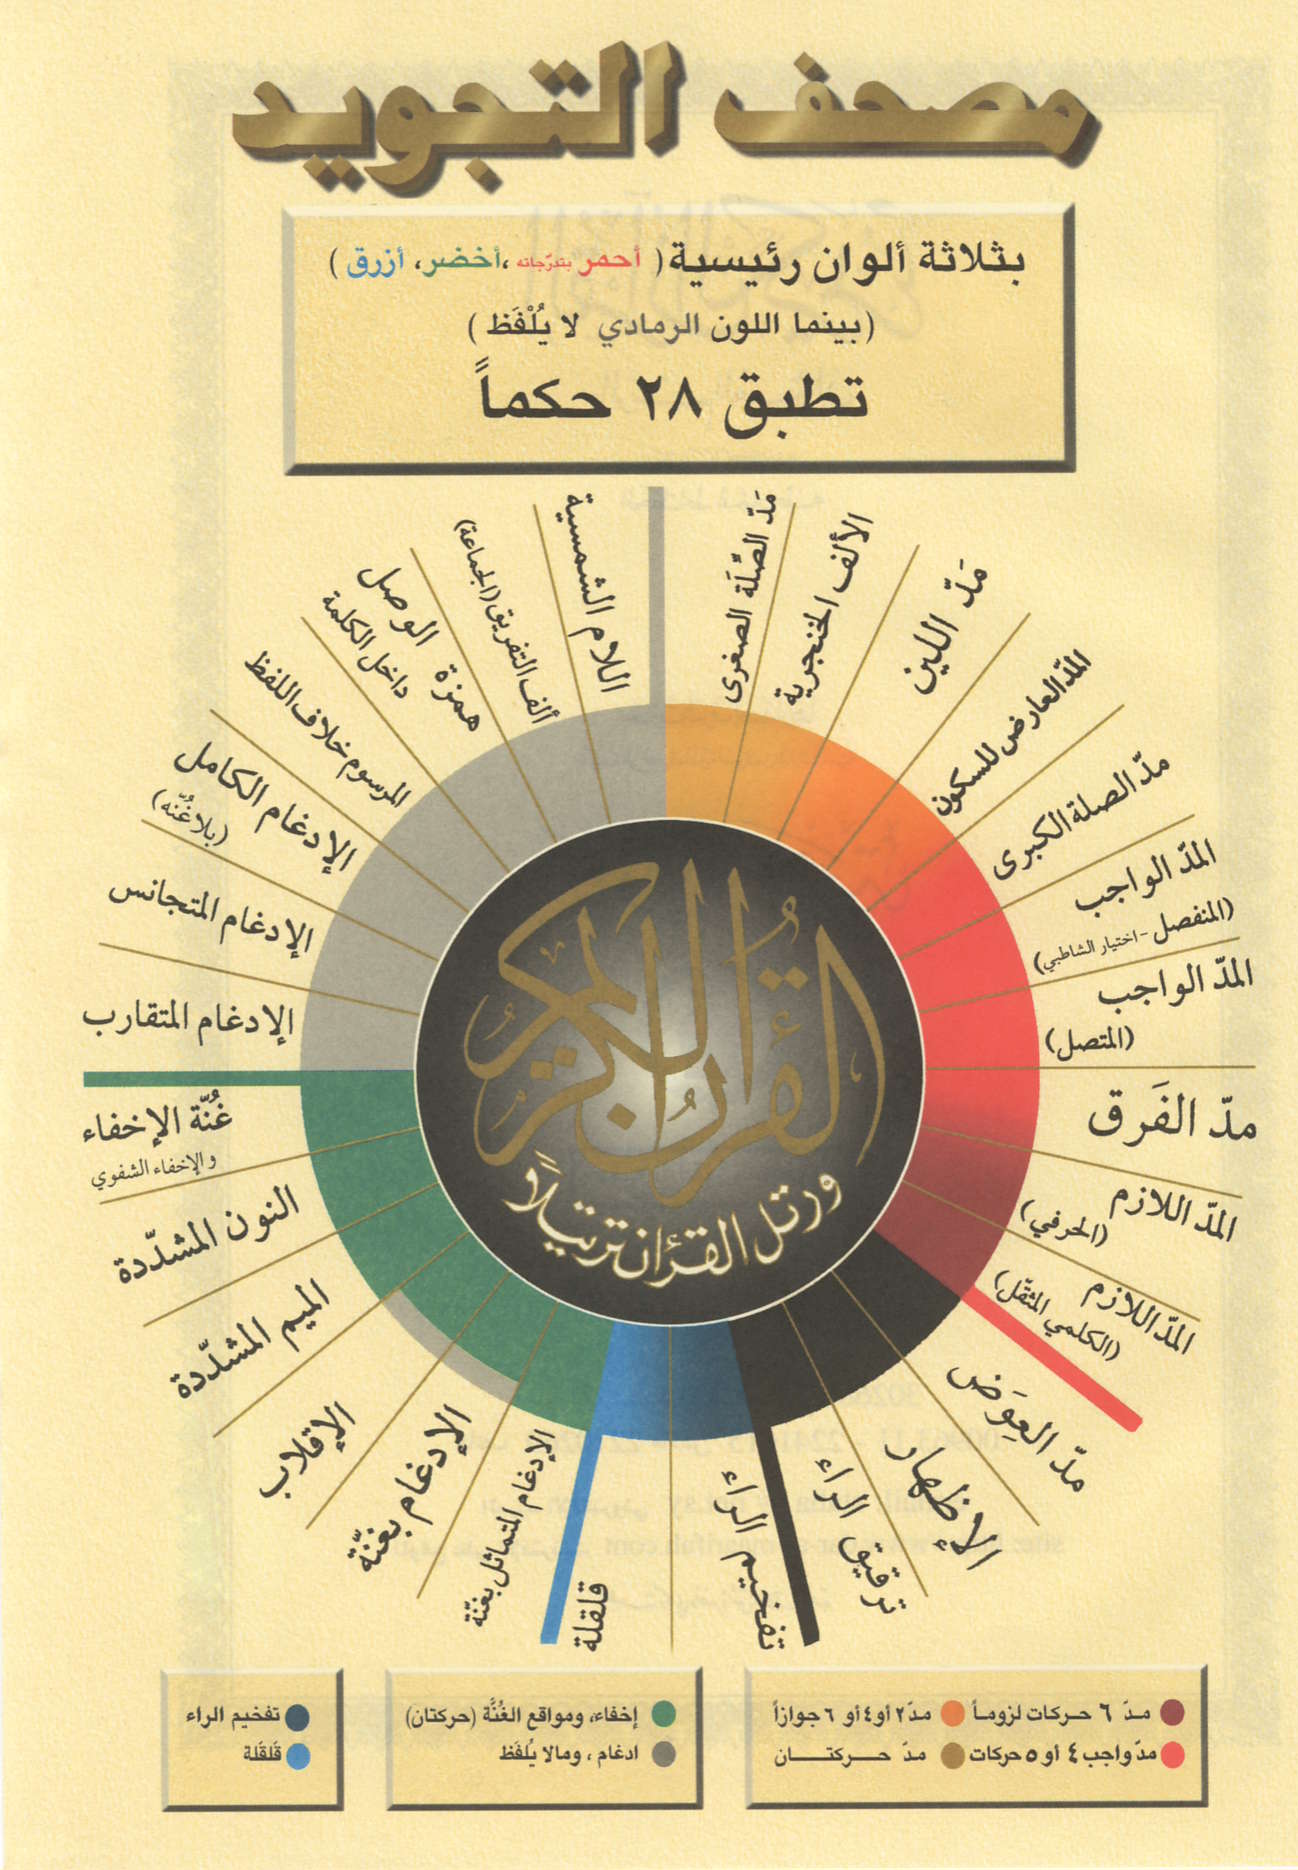 مصحف التجويد
بثلاثة ألوان رئيسية ( أحمر بتدرّجاته ،أخضر، أزرق )
(بينما اللون الرمادي لا يُلْفَظ )
تطبق ٢٨ حكماً
مَدّ الصِّلَة الصغرى
الألف الخنجرية
مَدّ اللين
المدّ العارض للسكون
مدّ الصلة الكبرى
المدّ الواجب
(المنفصل - اختيار الشاطبي)
المدّ الواجب
(المتصل)
مدّ الفَرق
المدّ اللازم
(الحرفي)
المدّ اللازم
(الكلمي المثقّل)
مدّ العِوَض
الإظهار
ترقيق الراء
تفخيم الراء
قلقلة
الإدغام المتماثل بغنّة
الإدغام بغنّة
الإقلاب
الميم المشدّدة
النون المشدّدة
غُنّة الإخفاء
والإخفاء الشفوي
الإدغام المتقارب
الإدغام المتجانس
الإدغام الكامل
(بلا غُنّه)
المرسوم خلاف اللفظ
همزة الوصل
داخل الكلمة
ألف التفريق (الجماعة)
اللام الشمسية
القرآن الكريم
ورتل القرءان ترتيلًا
مدّ ٦ حركات لزوماً
مدّ ٢ أو ٤ أو ٦ جوازاً
مدّ واجب ٤ أو ٥ حركات
مدّ حركتان
إخفاء، ومواقع الغُنَّة (حركتان)
ادغام ، ومالا يُلفَظ
تفخيم الراء
قَلقَلة